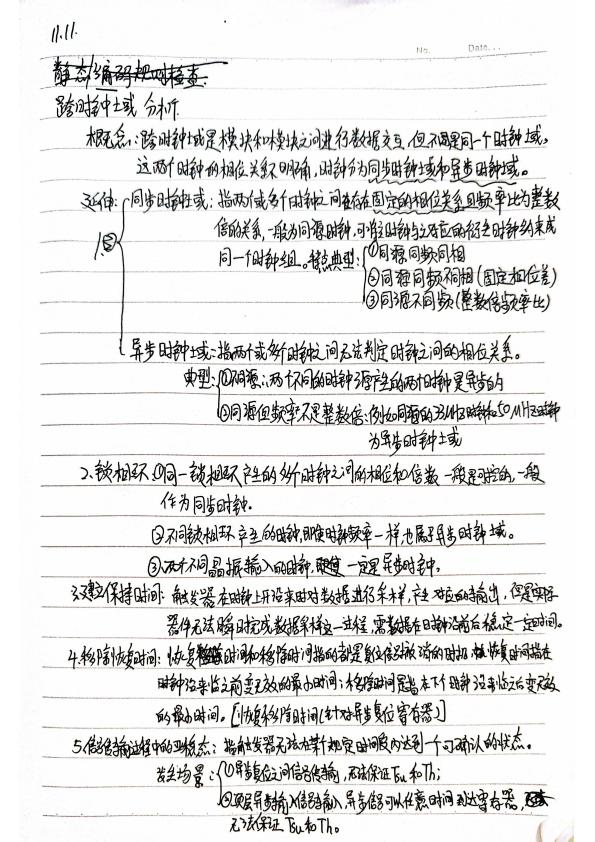 11.11.
No. Date...
静态/编码规则检查:
跨时钟域 分析
概念:跨时钟域是模块和模块之间进行数据交互,但不是同一个时钟域,
这两个时钟的相位关系不明确,时钟分为同步时钟域和异步时钟域。
延伸:
同步时钟域:指两个或多个时钟之间存在固定的相位关系且频率比为整数
倍的关系,一般为同源时钟,可将主时钟与之对应的衍生时钟约束成
同一个时钟组。典型:①同源同频同相
②同源同频不同相(固定相位差)
③同源不同频(整数倍频率比)
异步时钟域:指两个或多个时钟之间无法判定时钟之间的相位关系。
典型:①不同源:两个不同的时钟源产生的两个时钟是异步的
②同源但频率不是整数倍:例如同源的33MHz时钟和50MHz时钟
为异步时钟域
2.锁相环:①同一锁相环产生的多个时钟之间的相位和倍数一般是可控的,一般
作为同步时钟.
②不同锁相环产生的时钟,即使时钟频率一样,也属于异步时钟域。
③两个不同晶振输入的时钟,一定是异步时钟,
3.建立保持时间:触发器在时钟上升沿来时对数据进行采样,产生对应的输出,但是实际
器件无法瞬时完成数据采样这一过程,需数据在时钟沿前后稳定一定时间。
4.移除恢复时间:恢复时间和移除时间指的都是复位信号撤消的时机,恢复时间指在
时钟沿来临之前变无效的最小时间;移除时间是指在下个时钟沿来临之后变无效
的最小时间。[恢复移除时间(针对异步复位寄存器)]
5.信号传输过程中的亚稳态:指触发器无法在某个规定时间段内达到一个可确认的状态。
发生场景:①异步复位之间信号传输,无法保证Tsu和Th;
②顶层异步输入信号输入,异步信号可以任意时间到达寄存器,
无法保证Tsu和Th。